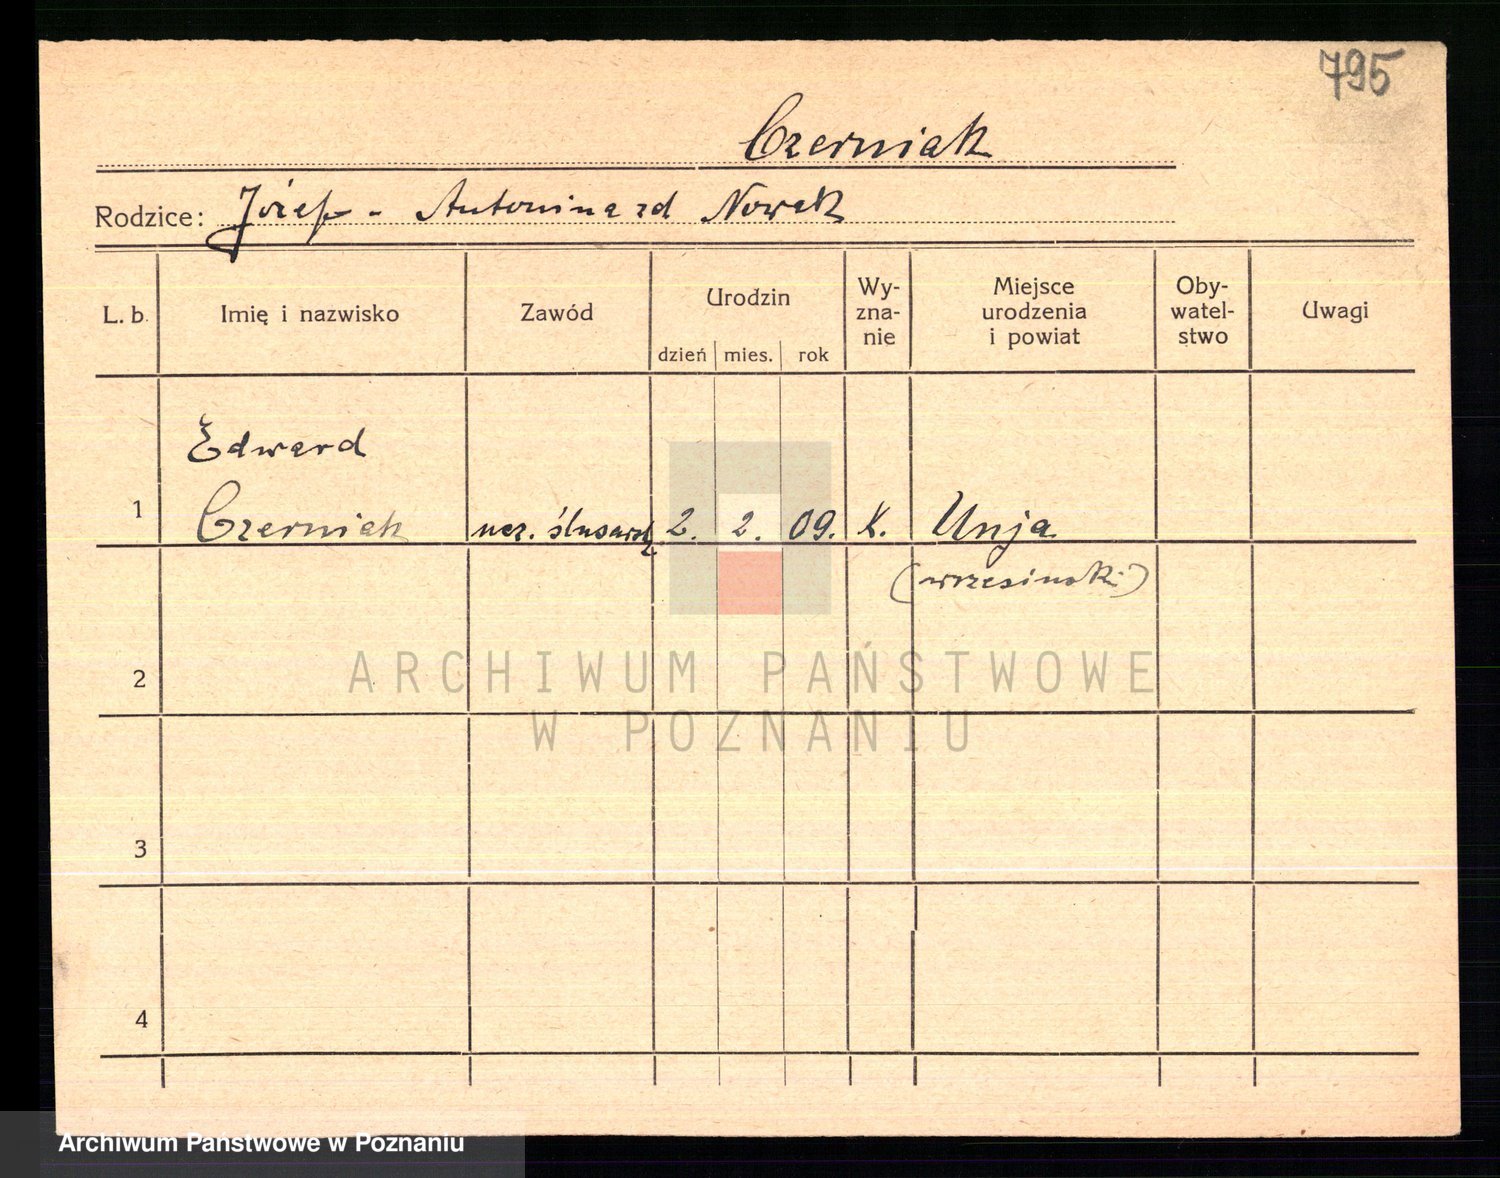 795
Czerniak
Rodzice: Józef - Antonina zd Nowak
L. b.
Imię i nazwisko
Zawód
Urodzin
dzień
mies.
rok
Wy-
zna-
nie
Miejsce
urodzenia
i powiat
Oby-
watel-
stwo
Uwagi
1
Edward
Czerniak
ucz. ślusarsk.
2.
2.
09.
k.
Unja
(wrzesiński)
2
3
4
ARCHIWUM PAŃSTWOWE
W POZNANIU
Archiwum Państwowe w Poznaniu